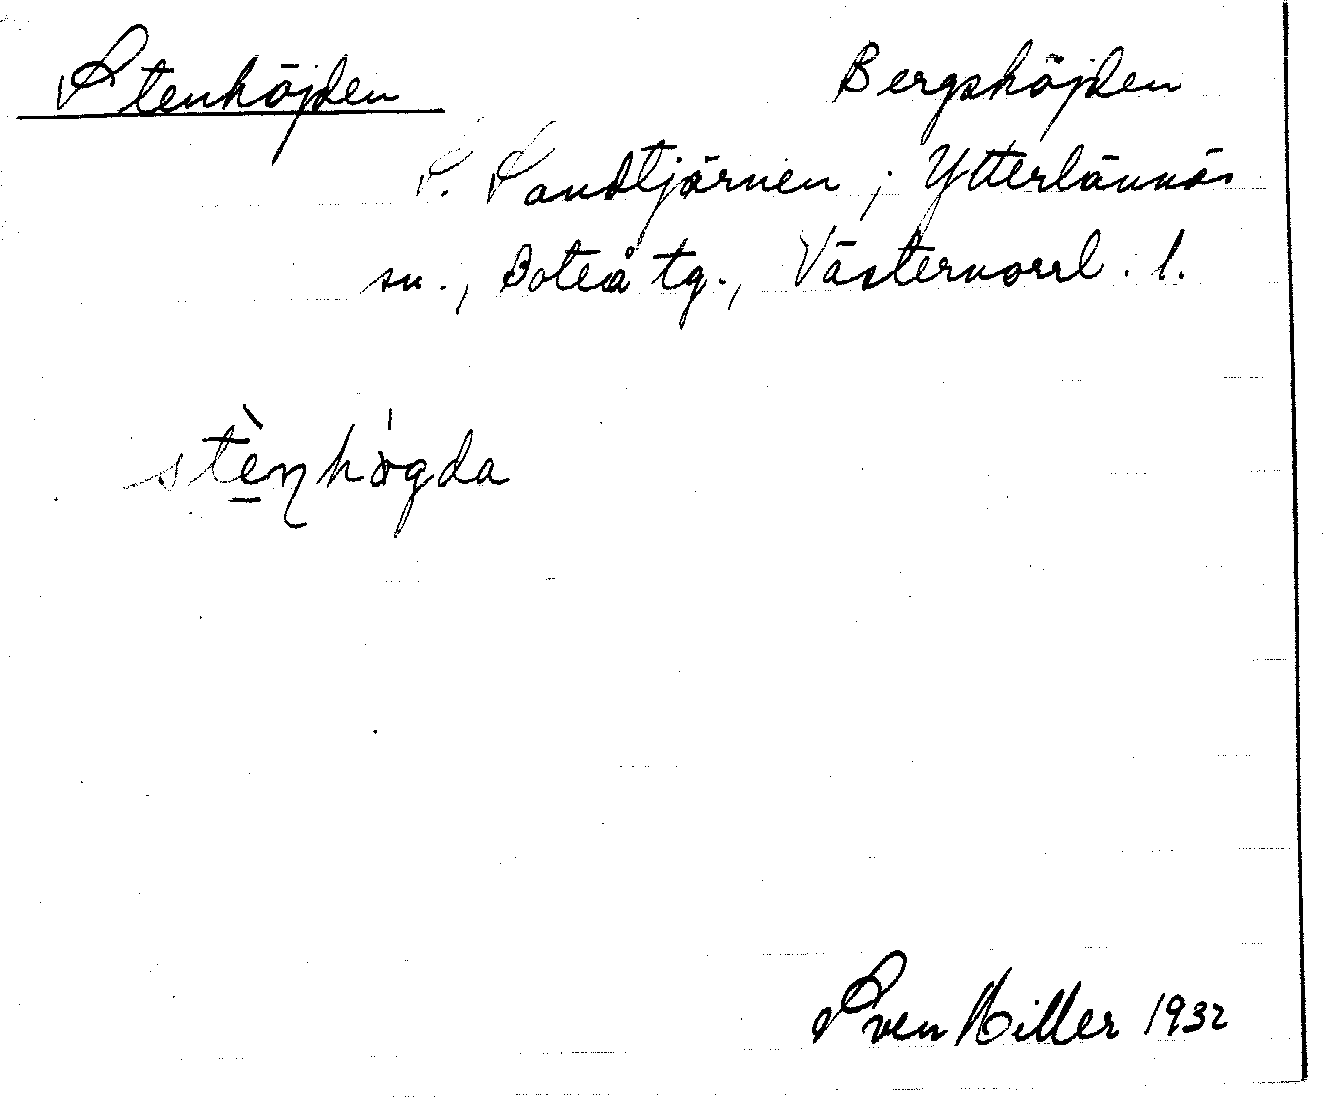 Stenhöjden Bergshöjden
S. Sandtjärnen, Ytterlännäs
sn., Boteå tg., Västernorrl. l.
stèn̨högda
Sven Hiller 1932